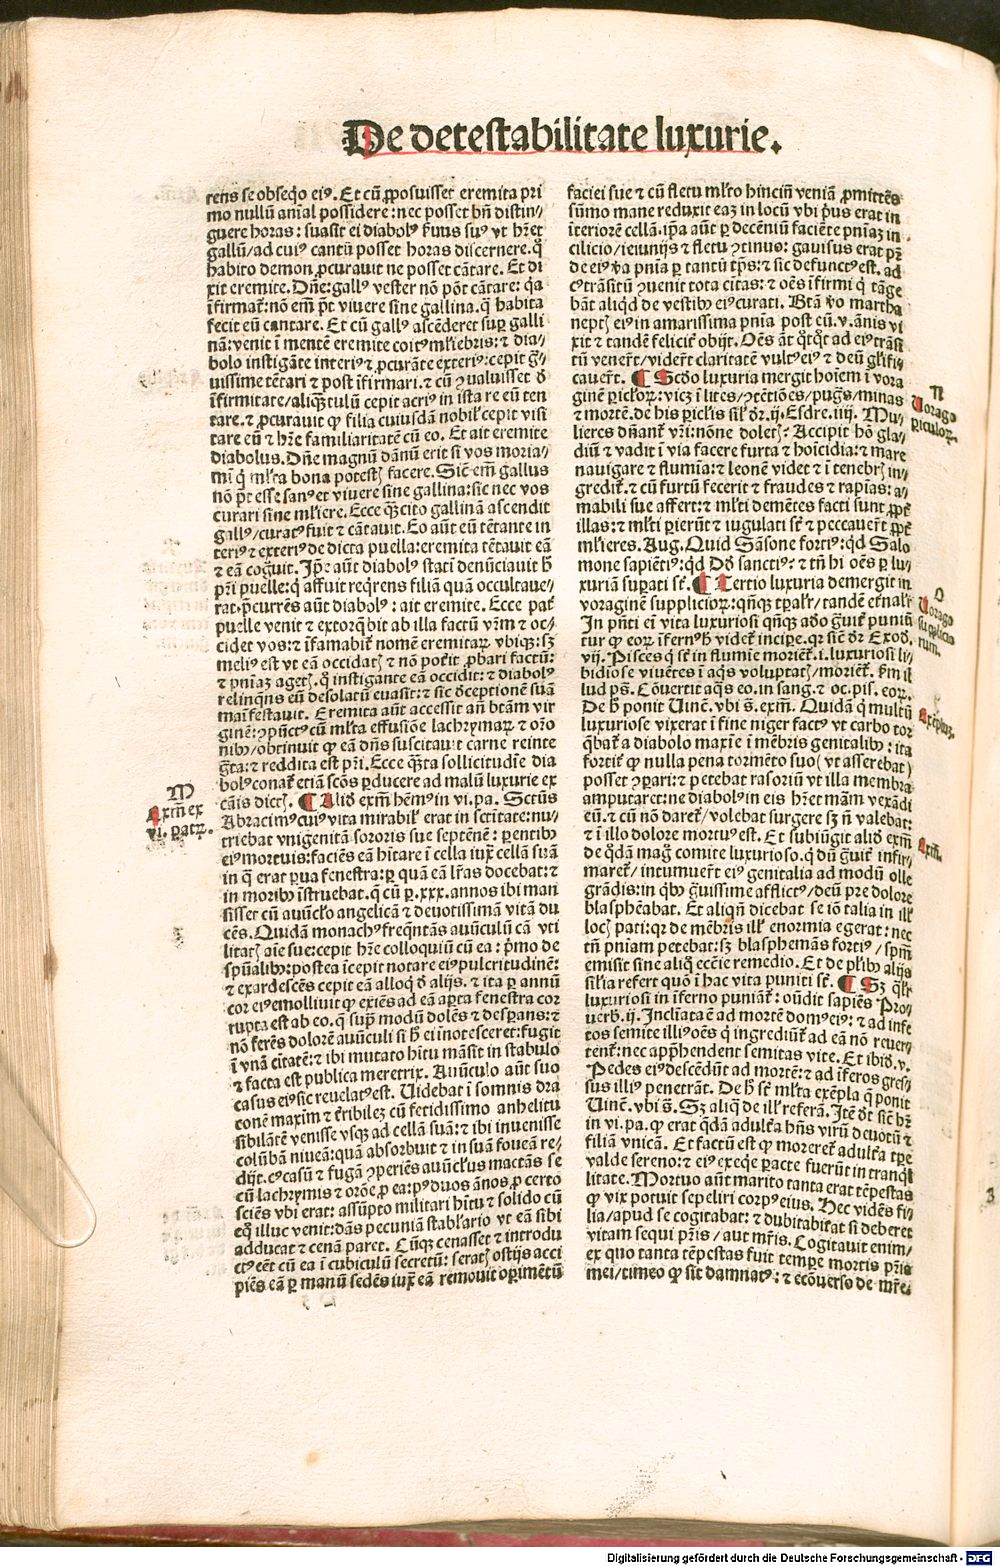 De detestabilitate luxurie.
rens se obseq̃o eiꝰ. Et cũ ꝓposuisset eremita pri
mo nullũ aĩal possidere: nec posset bñ distin⸗
guere horas: suasit ei diabolꝰ ẜuus suꝰ vt hr̃et
gallũ/ad cuiꝰ cantũ posset horas discernere. q̊
habito demon ꝓcurauit ne posset cãtare. Et di
xit eremite. Dñe: gallꝰ vester nõ põt cãtare: q̃a
ĩfirmat̃: nõ em̃ p̃t viuere sine gallina. q̃ habita
fecit eũ cantare. Et cũ gallꝰ ascẽderet suꝑ galli
nã: venit ĩ mentẽ eremite coitꝰ ml̃iebris: ⁊ dia⸗
bolo instigãte interiꝰ ⁊ ꝓcurãte exteriꝰ: cepit g̃⸗
uissime tẽtari ⁊ post ĩfirmari. ⁊ cũ ꝯualuisset ð
ĩfirmitate/aliq̃tulũ cepit acriꝰ in ista re eũ ten
tare. ⁊ ꝓcurauit ꝙ filia cuiusdã nobil̃ cepit visi
tare eũ ⁊ hr̃e familiaritatẽ cũ eo. Et ait eremite
diabolus. Dñe magnũ dãnũ erit si vos moria⸗
mĩ q̃ ml̃ta bona potestꝭ facere. Sic̃ em̃ gallus
nõ p̃t esse sanꝰ et viuere sine gallina: sic nec vos
curari sine ml̃iere. Ecce q̃ꝫcito gallinã ascendit
gallꝰ/curatꝰ fuit ⁊ cãtauit. Eo aũt eũ tẽtante in
teriꝰ ⁊ exteriꝰ de dicta puella: eremita tẽtauit eã
⁊ eã cog̃uit. Ip̃e aũt diabolꝰ stati denũciauit h̃
pr̃i puelle: q̃ affuit req̃rens filiã quã occultaue⸗
rat. p̃currẽs aũt diabolꝰ: ait eremite. Ecce pat̃
puelle venit ⁊ extorq̃bit ab illa factũ vr̃m ⁊ oc⸗
cidet vos: ⁊ ĩfamabit̃ nomẽ eremitaꝝ vbiqꝫ: sꝫ
meliꝰ est vt eã occidatꝭ ⁊ nõ pot̃it ꝓbari factũ:
⁊ pñiaꝫ agetꝭ. q̊ instigante eã occidit: ⁊ diabolꝰ
relinqns eũ desolatũ euasit: ⁊ sic ðceptionẽ suã
manĩfestauit. Eremita aũt accessit añ btãm vir
ginẽ: ꝯpũctꝰ cũ ml̃ta effusiõe lachrymaꝝ ⁊ or̃o
nibꝰ/obtinuit ꝙ eã dñs suscitauit carne reinte
g̃ta: ⁊ reddita est pr̃i. Ecce q̃ta sollicitudĩe dia
bolꝰ conat̃ etiã scõs ꝑducere ad malũ luxurie ex
cãis dictꝭ. ¶ Aliđ exm̃ hẽmꝰ in vi. pa. Sctũs
Abracimꝰ cuiꝰ vita mirabil̃ erat in sc̃itate: nu⸗
triebat vnigenitã sororis sue septenẽ: ꝑentibꝰ
eiꝰ mortuis: faciẽs eã hitare ĩ cella iux̃ cellã suã
in q̃ erat ꝑua fenestra: ꝑ quã eã l̃ras docebat: ⁊
in moribꝰ ĩstruebat. q̃ cũ ꝑ .xxx. annos ibi man
sisset cũ auũcl̃o angelicã ⁊ deuotissimã vitã du
cẽs. Quidã monachꝰ freq̃ntãs auũculũ cã vti
litatꝭ aĩe sue: cepit hr̃e colloquiũ cũ ea: p̃mo de
spũalibꝰ: postea ĩcepit notare eiꝰ pulcritudinẽ:
⁊ exardescẽs cepit eã alloq̃ ð alijs. ⁊ ita ꝑ annũ
cor eiꝰ emolliuit ꝙ exiẽs ad eã aꝑta fenestra cor
rupta est ab eo. q̃ supͣ modũ dolẽs ⁊ desꝑans: ⁊
nõ ferẽs dolorẽ auũculi si h̃ ei ĩnotesceret: fugit
ĩ vnã ciũtatẽ: ⁊ ibi mutato hitu mãsit in stabulo
⁊ facta est publica meretrix. Auũculo aũt suo
casus eiꝰ sic reuelatꝰ est. Uidebat ĩ somnis dra
conẽ maxim̃ ⁊ t̃ribileꝫ cũ fetidissimo anhelitu
sibilãtẽ venisse vsqꝫ ad cellã suã: ⁊ ibi inuenisse
colũbã niueã: quã absorbuit ⁊ in suã foueã re⸗
dijt. cꝰ casũ ⁊ fugã ꝯperiẽs auũcl̃us mactãs se
cũ lachrymis ⁊ or̃õe ꝓ ea: pꝰ duos ãnos, ꝓ certo
sciẽs vbi erat: assũpto militari hr̃tu ⁊ solido cũ
eq̊ illuc venit: dãs pecuniã stabl̃ario vt eã sibi
adducat ⁊ cenã paret. Cũqꝫ cenasset ⁊ introdu
ctꝰ eẽt cũ ea ĩ cubiculũ secretũ: seratꝭ ostijs acci
piẽs eã ꝑ manũ sedẽs iux̃ eã remouit oꝑimẽtũ
M
Exm̃ ex
vi. patꝝ.
faciei sue ⁊ cũ fletu ml̃to hinciñ veniã ꝓmittẽs
sũmo mane reduxit eaꝫ in locũ vbi pꝰus erat in
ĩteriorẽ cellã. ip̃a aũt ꝑ decẽniũ faciẽte pñiaꝫ in
cilicio/ieiunijs ⁊ fletu ꝯtinuo: gauisus erat pr̃
de eiꝰ ṽa pñia ꝑ tantũ tp̃s: ⁊ sic defunctꝰ est. ad
cꝰ trãsitũ ꝯuenit tota ciũtas: ⁊ oẽs ĩfirmi q̃ tãge
bãt aliqđ de vestibꝰ eiꝰ curati. Btã ṽo martha
neptꝭ eiꝰ in amarissima pnĩa post eũ .v. ãnis vi
xit ⁊ tandẽ felicit̃ obijt. Oẽs ãt q̃tq̃t ad eiꝰ trãsi
tũ venerũt/viderũt claritatẽ vultꝰ eiꝰ ⁊ deũ gl̃ifi⸗
cauert̃. ¶ Scđo luxuria mergit hoĩem ĩ vora
ginẽ ꝑiclõꝝ: vicꝫ ĩ lites/ꝯtẽtiões/pug̃s/minas
⁊ mortẽ. de his ꝑiclis sil̃ đr .ij. Esdre .iiij. Mu⸗
lieres dñant̃ vr̃i: nõne doletꝭ? Accipit hõ gla⸗
diũ ⁊ vadit ĩ via facere furta ⁊ hoĩcidia: ⁊ mare
nauigare ⁊ flumĩa: ⁊ leonẽ videt ⁊ ĩ tenebrꝭ in⸗
gredit̃. ⁊ cũ furtũ fecerit ⁊ fraudes ⁊ rapĩas: a⸗
mabili sue affert: ⁊ ml̃ti demẽtes facti sunt ꝓpt̃
illas: ⁊ ml̃ti ꝑierũt ⁊ iugulati st̃ ⁊ peccauert̃ ꝓpt̃
ml̃ieres. Aug. Quid Sãsone fortiꝰ: qđ Salo
mone sapiẽtiꝰ: qđ Dđ sanctiꝰ? ⁊ tñ hi oẽs ꝑ lu⸗
xuriã suꝑati st̃. ¶ Tertio luxuria demergit in
voraginẽ supplicioꝝ: qñqꝫ tꝑal̃r/tandẽ et̃nal̃r
In pñti ei vita luxuriosi qñqꝫ ađo g̃uit̃ puniũ
tur ꝙ eoꝝ ĩfernꝰ h̃ videt̃ incipe. qr̃ sic̃ đr Exođ.
vij. Pisces q̃ st̃ in flumĩe moriẽt̃ .i. luxuriosi li⸗
bidiose viuẽtes ĩ aq̃s voluptatꝭ/moriẽt̃. ẜm il
lud ps̃. Cõuertit aq̃s eo. in sang. ⁊ oc. pis. eoꝝ.
De h̃ ponit Uinẽ. vbi s̃. exm̃. Quidã q̃ multũ
luxuriose vixerat ĩ fine niger factꝰ vt carbo tor
q̃bat̃ a diabolo maxĩe ĩ mẽbris genitalibꝰ: ita
fortit̃ ꝙ nulla pena tormẽto suo (vt asserebat)
posset ꝯpari: ⁊ petebat rasoriũ vt illa membra
amputaret: ne diabolꝰ in eis hr̃et mãm vexãdi
eũ. ⁊ cũ nõ daret̃/volebat surgere sꝫ ñ valebat:
⁊ ĩ illo dolore mortuꝰ est. Et subiũgit aliđ exm̃
de q̃dã mag̊ comite luxurioso. q̃ dũ g̃uit̃ infir⸗
maret̃/intumuert̃ eiꝰ genitalia ad modũ olle
grãdis: in q̃bꝰ g̃uissime afflictꝰ/deũ pre dolore
blasphẽabat. Et aliqñ dicebat se iõ talia in ill̃
locꝭ pati: qr̃ de mẽbris ill̃ enormia egerat: nec
tñ pniam petebat: sꝫ blasphemãs fortiꝰ/spm̃
emisit sine aliq̊ eccẽie remedio. Et de pl̃ibꝰ alijs
sil̃ia refert quõ ĩ hac vita puniti st̃. ¶ Sꝫ ql̃r
luxuriosi in ĩferno puniãt̃: oñdit sapiẽs Pro⸗
uerb̃. ij. Inclĩata ẽ ad mortẽ domꝰ eiꝰ: ⁊ ad infe
ros semite illiꝰ oẽs q̃ ingrediũt̃ ad eã nõ reuer⸗
tent̃: nec app̃hendent semitas vite. Et ibiđ. v.
Pedes eiꝰ descẽdũt ad mortẽ: ⁊ ad ĩferos gres⸗
sus illiꝰ penetrãt. De h̃ st̃ ml̃ta exẽpla q̃ ponit
Uinẽ. vbi s̃. Sꝫ aliq̃ de ill̃ referã. Itẽ đt sic̃ hr̃
in vi. pa. ꝙ erat q̃dã adult̃a hñs virũ deuotũ ⁊
filiã vnicã. Et factũ est ꝙ moreret̃ adult̃a tꝑe
valde sereno: ⁊ eiꝰ exeq̃e ꝑacte fuerũt in tranq̃l
litate. Mortuo aũt marito tanta erat tẽpestas
ꝙ vix potuit sepeliri corpꝰ eius. Hec vidẽs fi⸗
lia/apud se cogitabat: ⁊ dubitabat̃ si deberet
vitam sequi pr̃is/aut mr̃is. Cogitauit enim/
ex quo tanta tẽpestas fuit tempe mortis pr̃is
mei/timeo ꝙ sit damnatꝰ: ⁊ ecõuerso de mr̃e.
N
Uorago
ꝑiculoꝝ.
O
Uorago
supplicio
rum.
Exẽplũ.
Exm̃.
Digitalisierung gefördert durch die Deutsche Forschungsgemeinschaft - DFG